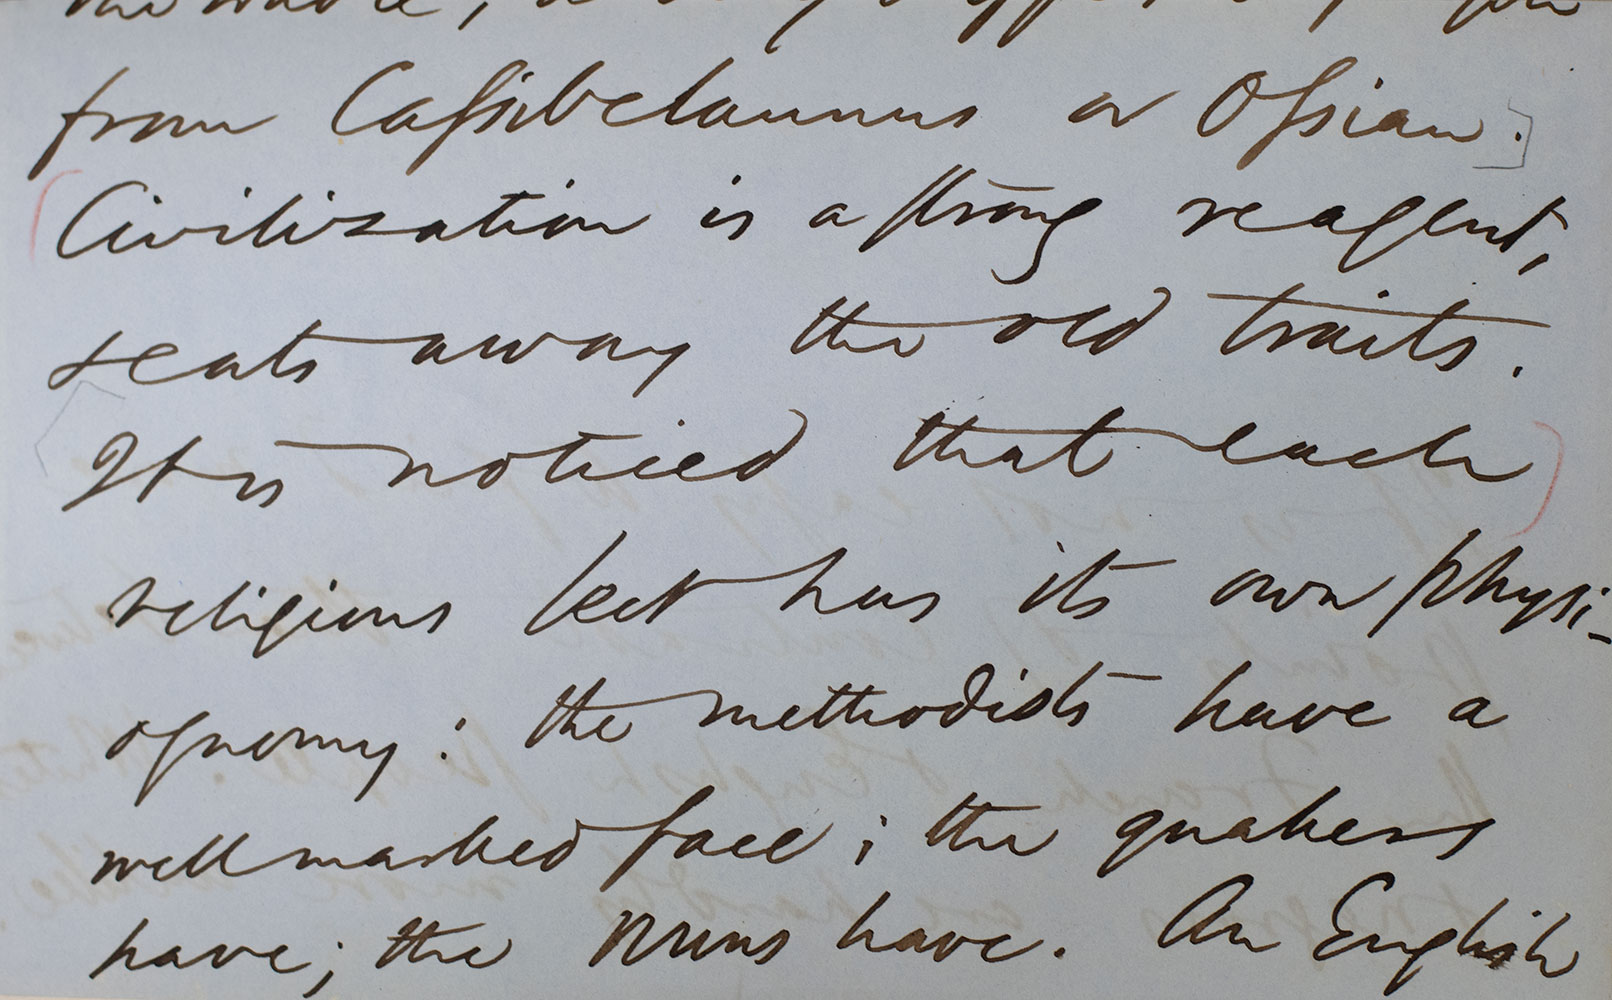 from Cassibelaunus or Ossian.
Civilization is a strong reagent,
& eats away the old traits.
It is noticed that each
religious sect has its own physi-
ognomy: the methodists have a
well marked face; the quakers
have; the nuns have. An English